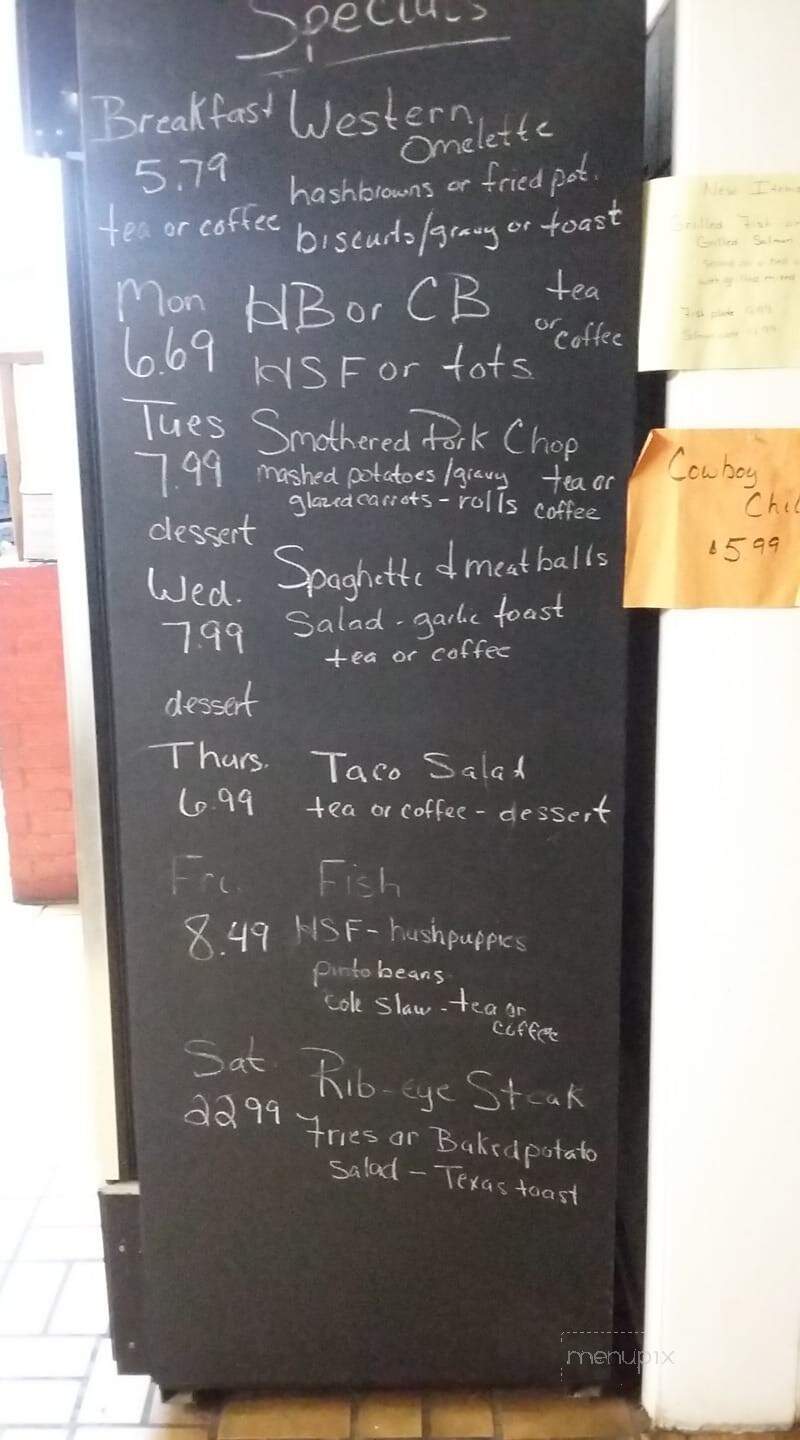 Specials
Breakfast Western Omelette
5.79 hashbrowns or fried pot.
tea or coffee biscuits/gravy or toast
Mon HB or CB tea or coffee
6.69 HSF or tots
Tues Smothered Pork Chop
7.99 mashed potatoes/gravy tea or
glazed carrots - rolls coffee
dessert
Wed. Spaghetti & meatballs
7.99 Salad - garlic toast
tea or coffee
dessert
Thurs. Taco Salad
6.99 tea or coffee - dessert
Fri. Fish
8.49 HSF - hushpuppies
pinto beans
cole slaw - tea or
coffee
Sat Rib-eye Steak
22 99 Fries or Baked potato
Salad - Texas toast
New Items
Grilled Fish
Grilled Salmon
Fish plate
Cowboy
Chil
$5 99
menupix